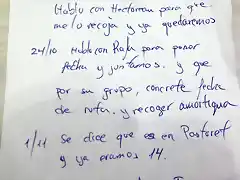 Hablo con Hectorman para que
me lo recoja y ya quedaremos
24/10 Hablo con Rafa para poner
fecha y juntarnos. y que
por su grupo, concrete fecha
de ruta. y recoger amortigua
1/11 Se dice que es en Pastoret
y ya eramos 14.